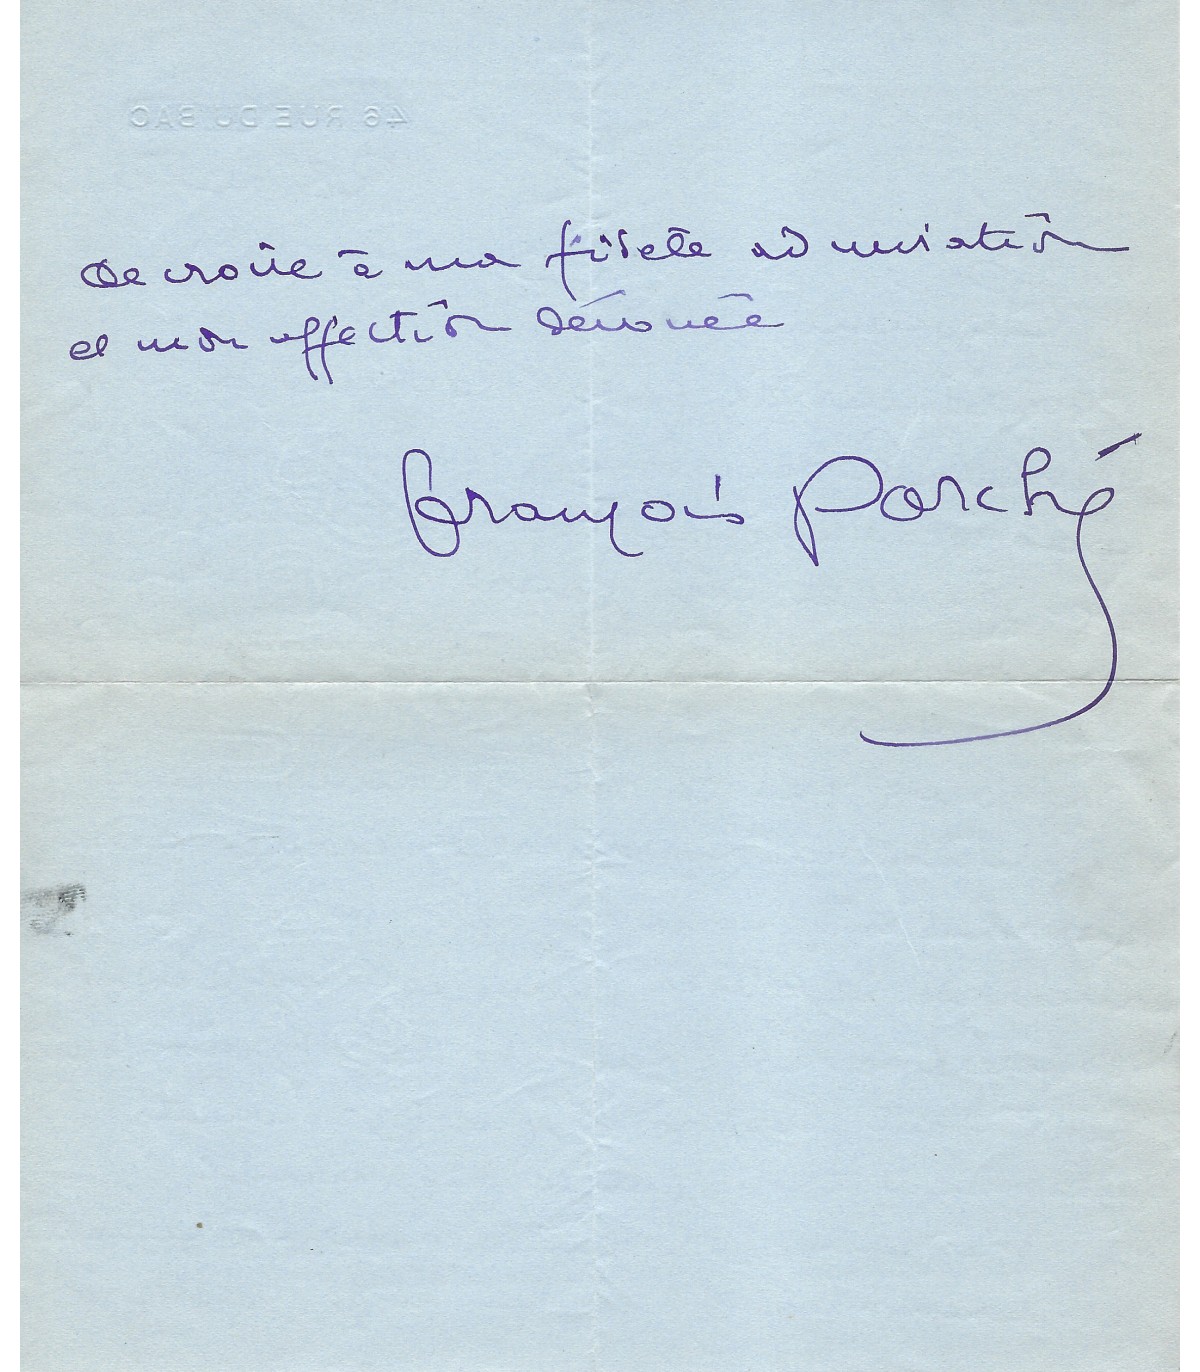 46 RUE DU BAC
de croire à ma fidèle admiration
et mon affection dévouée
François Porché